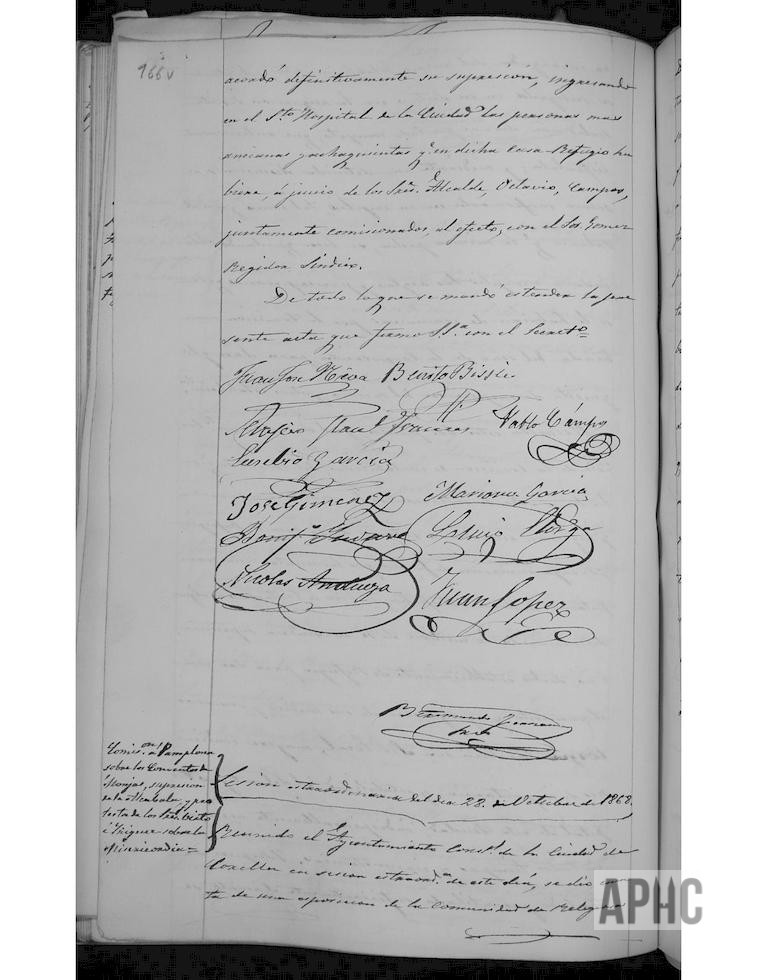 166v
acordó definitivamente su supresión, ingresando
en el Sto Hospital de la Ciudad las personas mas
ancianas y achaquientas qe en dicha Casa-Refugio hu
biere, á juicio de los Sres. Alcalde, Octavio, Campos,
juntamente comisionados, al efecto, con el Sor. Gomez
Regidor Síndico.
De todo lo que se mandó estender la pre
sente acta que firmo S.Sa con el Secreto
Juan José Benito
Pablo Cámpos
Eusebio García
José Gimenez Mariano García
Luis
Nicolas Andueza
Juan Lopez
Bermundo
Comison á Pamplona
sobre los Conventos de
Monjas, supresion
de la Alcabala, y pro
testa de los Sres.
é Iñiguez sobre la
Misericordia=
Sesion estraordinaria del dia 28. de Octubre de 1868.
Reunido el Ayuntamiento Constl. de la Ciudad de
Corella en sesion estraorda. de este dia, se dió cuen
ta de una esposicion de la Comunidad de Religiosas
APHC